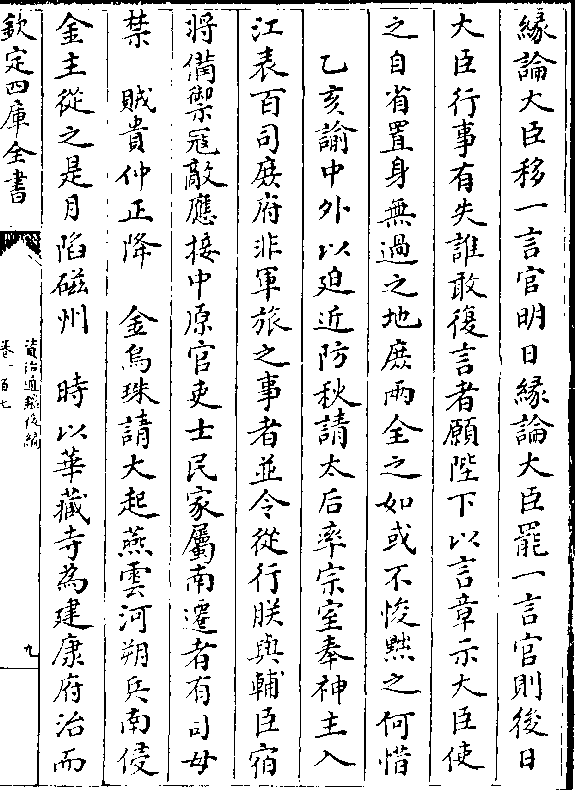 緣論大臣移一言官明日緣論大臣罷一言官則後日
大臣行事有失誰敢復言者願陛下以言章示大臣使
之自省置身無過之地庶兩全之如或不悛黜之何惜
乙亥諭中外以迫近防秋請太后率宗室奉神主入
江表百司庶府非軍旅之事者並令從行朕與輔臣宿
將備禦寇敵應接中原官吏士民家屬南遷者有司毋
禁　賊貴仲正降　金烏珠請大起燕雲河朔兵南侵
金主從之是月陷磁州　時以華藏寺為建康府治而
欽定四庫全書
資治通鑑後編
卷一百七
九